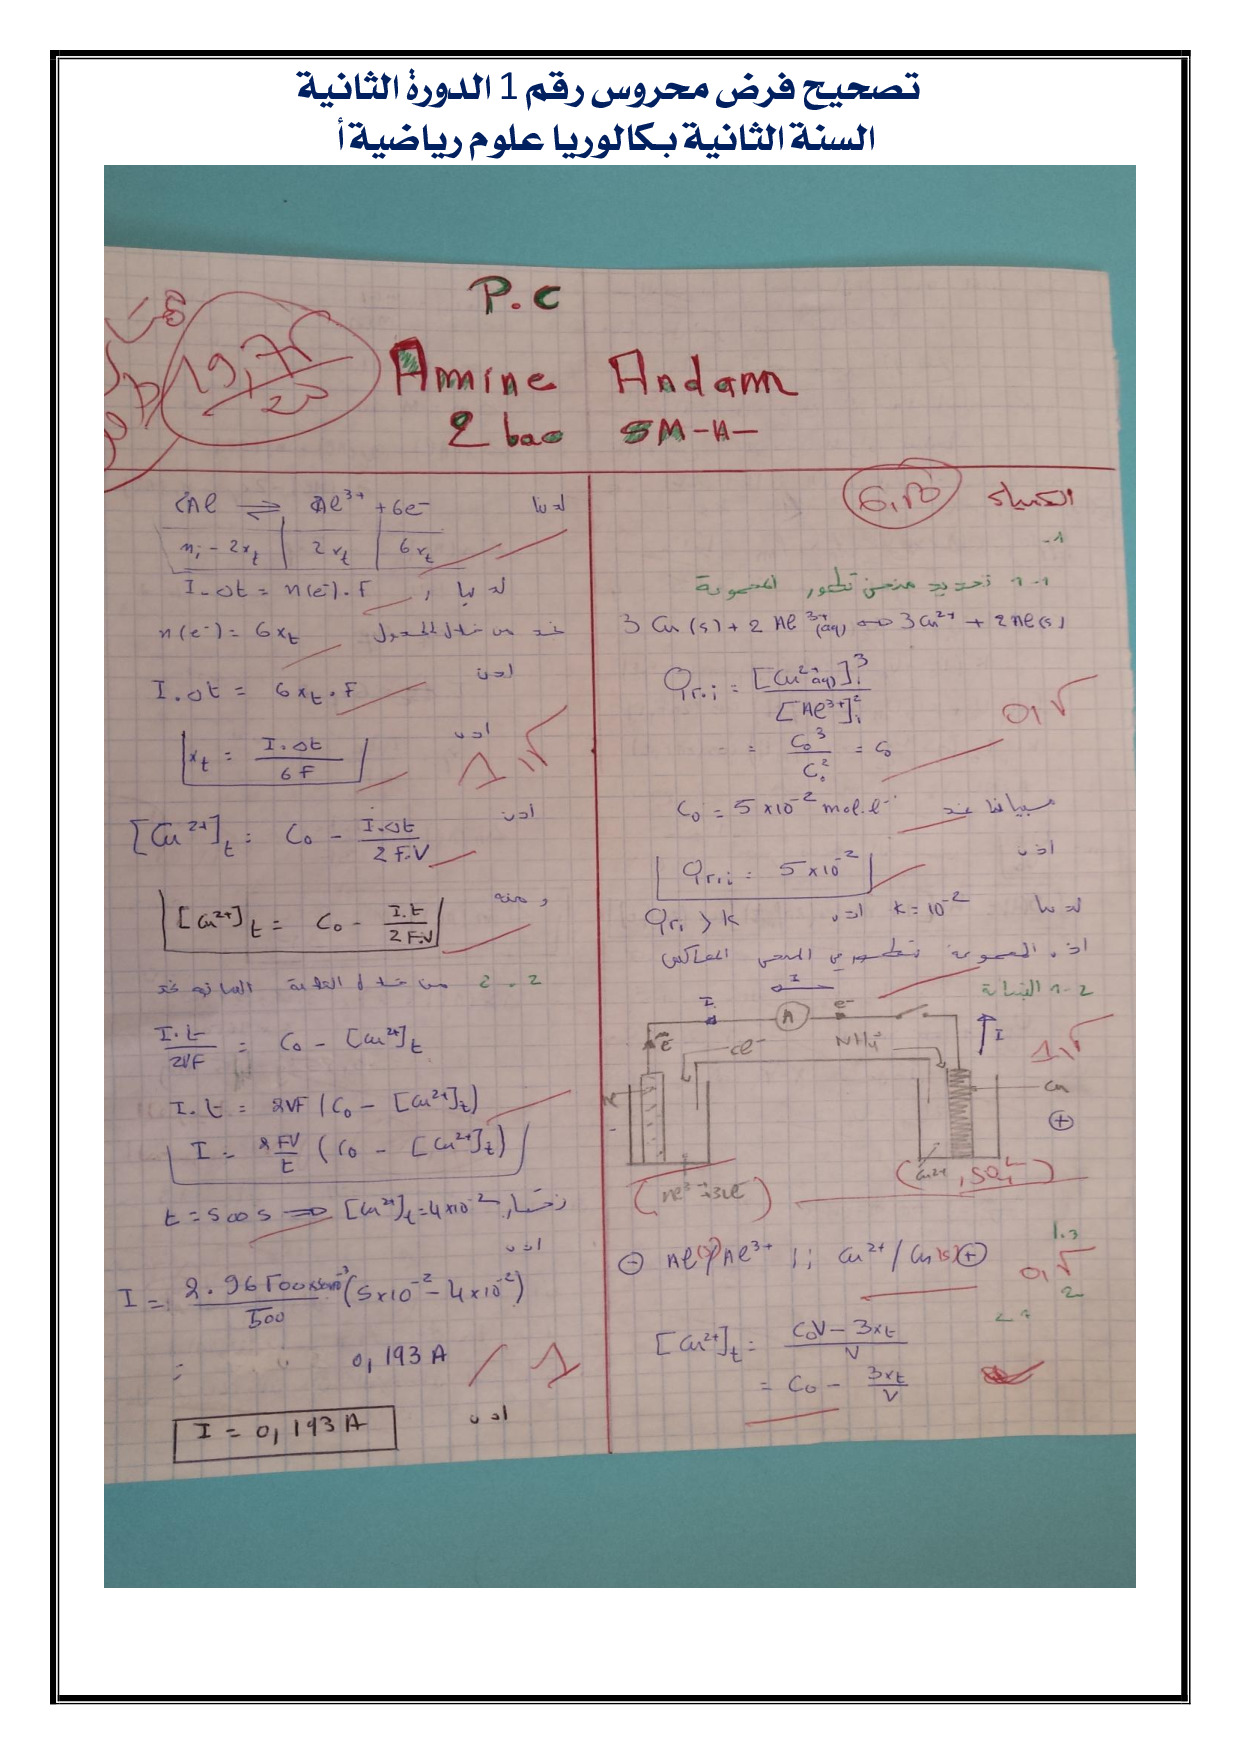 تصحيح فرض محروس رقم 1 الدورة الثانية
السنة الثانية بكالوريا علوم رياضية أ
P.C
19,75
20
Amine Andam
2 bac SM-A-
الكيمياء
1-
1-1 تحديد منحى تطور المجموعة
3 Cu(s) + 2 Al³⁺(aq) ⇔ 3Cu²⁺ + 2Al(s)
Qr,i = [Cu²⁺aq]³i / [Al³⁺]²i
0,5
= C₀³ / C₀² = C₀
مبيانيا عند C₀ = 5×10⁻² mol.l⁻¹
اذن
Qr,i = 5×10⁻²
لدينا K = 10⁻² اذن Qri > K
اذن المجموعة تتطور في المنحى المعاكس
1-2 التبيانة
I
I A e⁻
e⁻ Cl⁻ NH₄⁺ I
1,5
Cu
+
Cu²⁺, SO₄²⁻
1.3
⊖ Al(s)/Al³⁺ ;; Cu²⁺/Cu(s) ⊕
0,5
2-
[Cu²⁺]t = (C₀V - 3xt) / V
= C₀ - 3xt / V
لدينا 2Al ⇌ 2Al³⁺ + 6e⁻
ni - 2xt | 2xt | 6xt
لدينا I.Δt = n(e⁻).F
نجد من خلال الجدول n(e⁻) = 6xt
اذن
I.Δt = 6xt.F
اذن
xt = I.Δt / 6F
1,5
اذن
[Cu²⁺]t = C₀ - I.Δt / 2F.V
ومنه
[Cu²⁺]t = C₀ - I.t / 2F.V
2.2 من خلال العلاقة السابقة نجد
I.t / 2VF = C₀ - [Cu²⁺]t
I.t = 2VF (C₀ - [Cu²⁺]t)
I = 2FV/t (C₀ - [Cu²⁺]t)
نختار t = 500 s ⇒ [Cu²⁺]t = 4×10⁻²
اذن
I = 2.96500×50×10⁻³ / 500 (5×10⁻² - 4×10⁻²)
= 0,193 A
1
اذن
I = 0,193 A